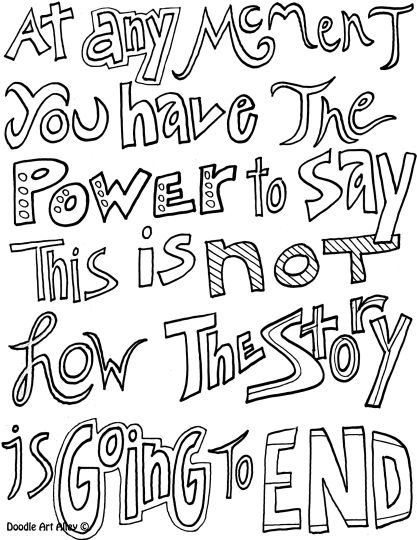 At any Moment
you have The
Power to Say
This is not
how The Story
is Going To END
Doodle Art Alley ©